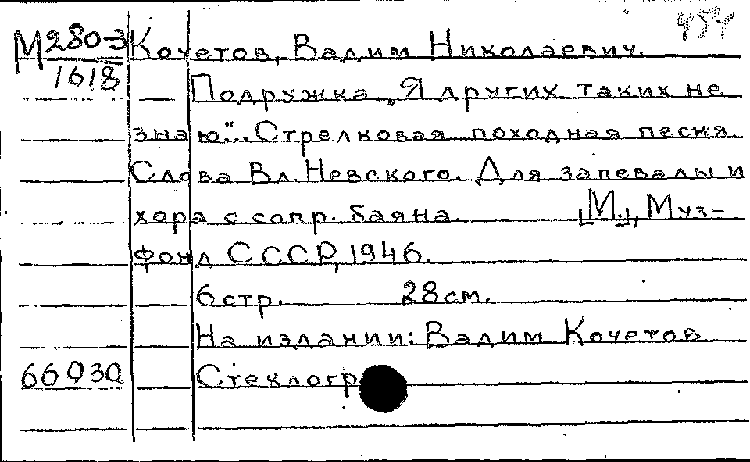 454
М280-3 Кочетов, Вадим Николаевич.
1618 Подружка „Я других таких не
знаю"... Стрелковая походная песня
Слова Вл. Невского. Для запевалы и
хора с сопр. баяна. [М.], Муз-
фонд СССР, 1946.
6 стр. 28 см.
На издании: Вадим Кочетов
66030 Стеклогр